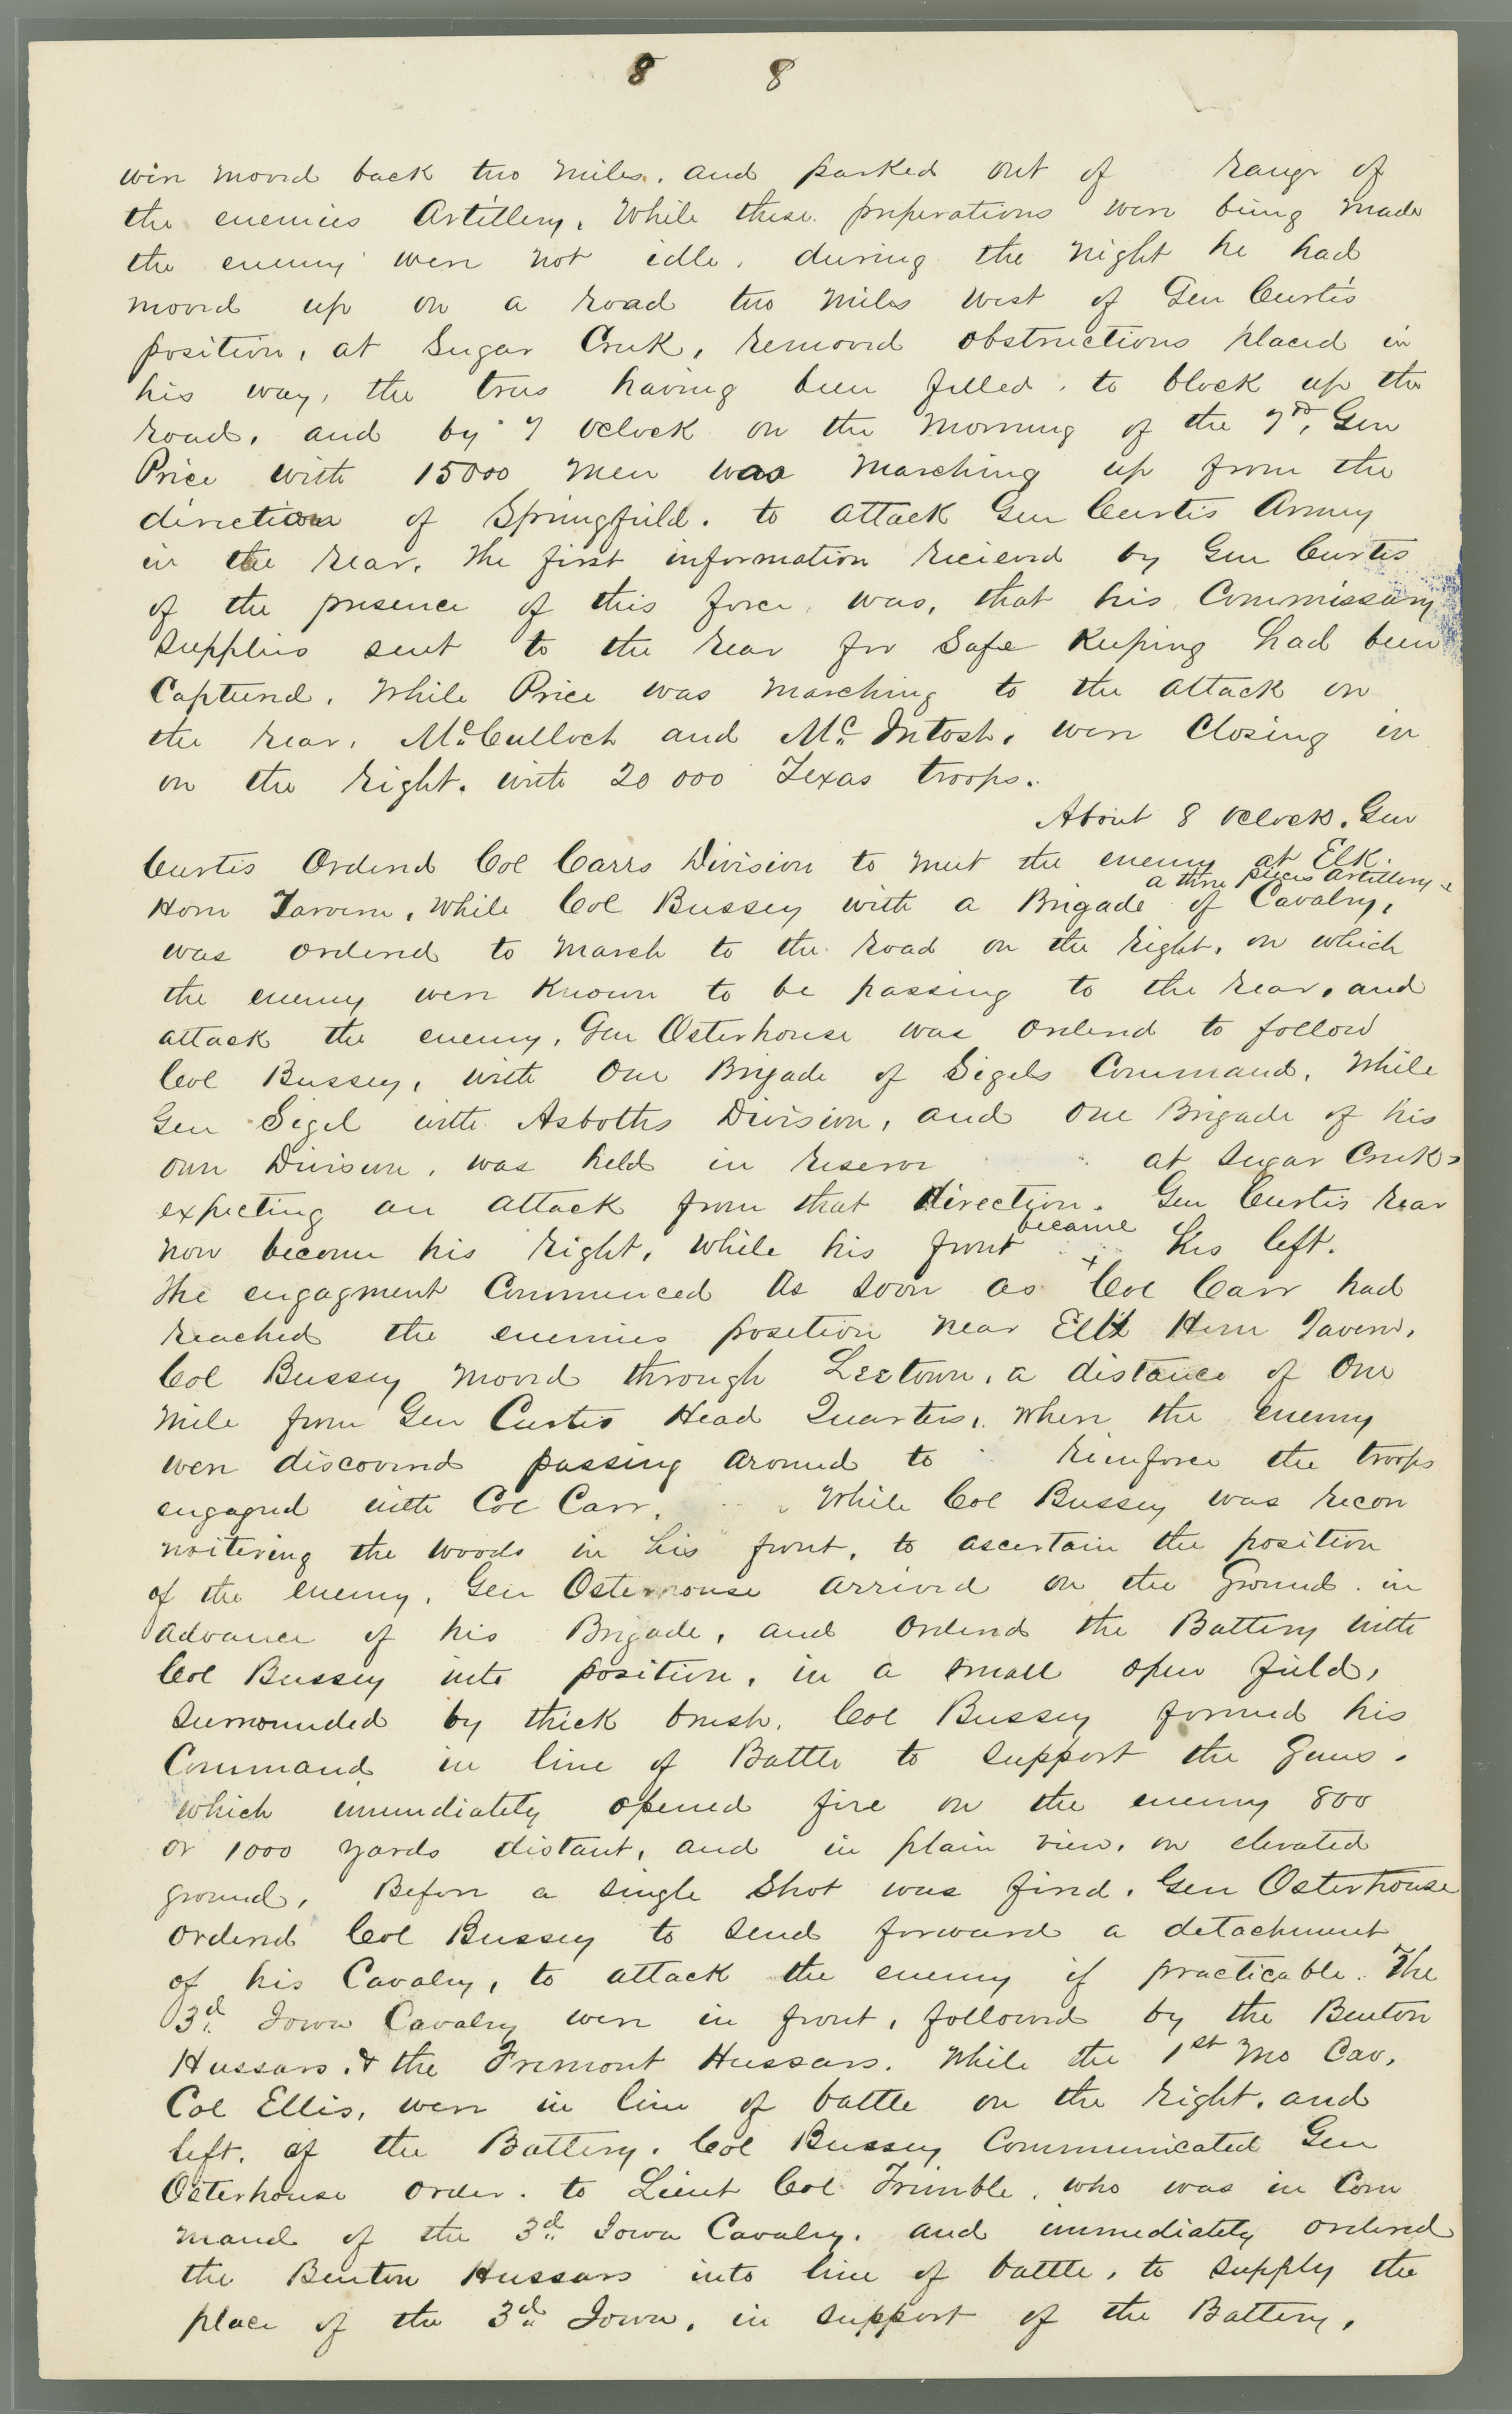 8 8
were moved back two miles. and parked out of range of
the enemies Artillery. While these preperations were being made
the enemy were not idle. during the night he had
moved up on a road two miles west of Gen Curtis
position, at Sugar Creek, removed obstructions placed in
his way, the trees having been felled. to block up the
road, and by 7 oclock on the morning of the 7th, Gen
Price with 15000 men was marching up from the
direction of Springfield. to attack Gen Curtis Army
in the rear. The first information recieved by Gen Curtis
of the presence of this force was, that his Commissary
supplies sent to the rear for Safe Keeping had been
Captured. While Price was marching to the attack on
the rear, McCulloch and McIntosh, were Closing in
on the right. with 20 000 Texas troops.
About 8 oclock. Gen
Curtis Ordered Col Carrs Division to meet the enemy at Elk.
a three pieces Artillery &
Horn Tavern, While Col Bussey with a Brigade of Cavalry,
was ordered to march to the road on the right, on which
the enemy were Known to be passing to the rear, and
attack the enemy, Gen Osterhouse was ordered to follow
Col Bussey, with One Brigade of Sigels Command. While
Gen Sigel with Asboths Division, and one Brigade of his
own Division, was held in reserve at Sugar Creek
expecting an attack from that direction. Gen Curtis rear
became
now become his right, while his front his left.
The engagment Commenced As soon as Col Carr had
reached the enemies position near Elk Horn Tavern,
Col Bussey moved through Leetown, a distance of One
mile from Gen Curtis Head Quarters, When the enemy
were discovered passing around to reinforce the troops
engaged with Col Carr. While Col Bussey was recon
noitering the woods in his front, to ascertain the position
of the enemy, Gen Osterhouse arrived on the Ground in
advance of his Brigade, and ordered the Battery with
Col Bussey into position, in a small open field,
surrounded by thick brush. Col Bussey formed his
Command in line of Battle to support the Guns.
which immediately opened fire on the enemy 800
or 1000 yards distant, and in plain view, on elevated
ground, Before a single Shot was fired. Gen Osterhouse
ordered Col Bussey to send forward a detachment
of his Cavalry, to attack the enemy if practicable. The
3d Iowa Cavalry were in front, followed by the Benton
Hussars. & the Fremont Hussars. While the 1st Mo Cav,
Col Ellis, were in line of battle on the right, and
left, of the Battery. Col Bussey Communicated Gen
Osterhouse order. to Lieut Col Trimble, who was in Com
mand of the 3d Iowa Cavalry. and immediately ordered
the Benton Hussars into line of battle, to supply the
place of the 3d Iowa, in support of the Battery,